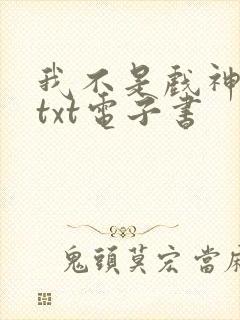 我不是戲神
txt電子書
鬼頭莫宏當